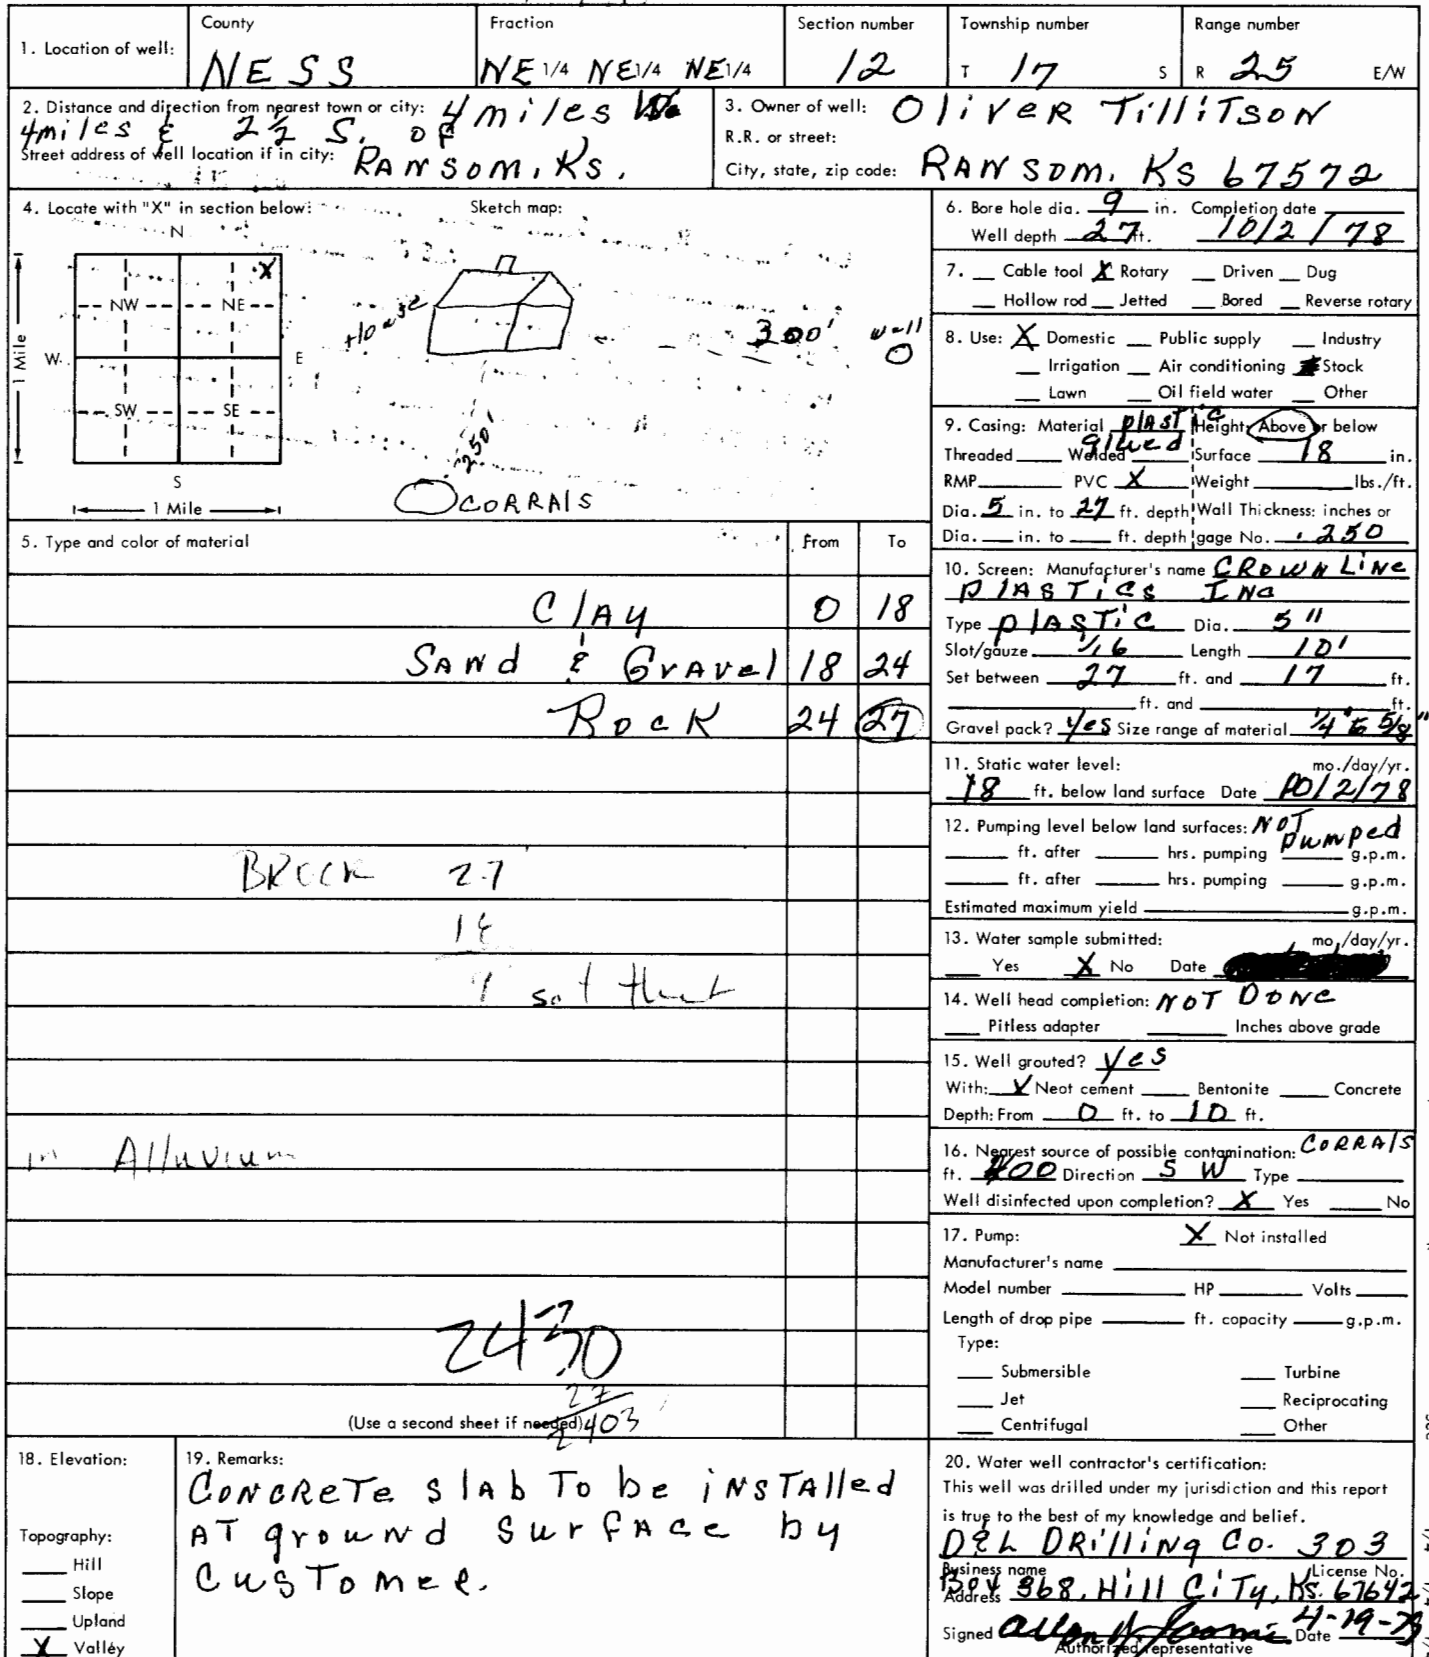 County Fraction Section number Township number Range number
1. Location of well: NESS NE 1/4 NE 1/4 NE 1/4 12 T 17 S R 25 E/W
2. Distance and direction from nearest town or city: 4 miles
4 miles & 2 1/2 S. of
Street address of well location if in city: RANSOM, KS.
3. Owner of well: OliVER TilliTSON
R.R. or street:
City, state, zip code: RANSOM, KS 67572
4. Locate with "X" in section below: Sketch map:
N
X
NW NE
W E
SW SE
S
1 Mile
1 Mile
House
300'
well
250'
CORRAlS
5. Type and color of material From To
ClAy 0 18
SANd & GrAvel 18 24
Rock 24 27
BROCK 27
18
9 sat
in Alluvium
2430
27
2403
(Use a second sheet if needed)
6. Bore hole dia. 9 in. Completion date
Well depth 27 ft. 10/2/78
7. Cable tool X Rotary Driven Dug
Hollow rod Jetted Bored Reverse rotary
8. Use: X Domestic Public supply Industry
Irrigation Air conditioning Stock
Lawn Oil field water Other
9. Casing: Material plASTiC Height: Above or below
glued
Threaded Welded Surface 18 in.
RMP PVC X Weight lbs./ft.
Dia. 5 in. to 27 ft. depth Wall Thickness: inches or
Dia. in. to ft. depth gage No. .250
10. Screen: Manufacturer's name CROWN LiNe
plASTiCS INC
Type plASTiC Dia. 5"
Slot/gauze 1/16 Length 10'
Set between 27 ft. and 17 ft.
ft. and ft.
Gravel pack? yes Size range of material 1/4" to 5/8"
11. Static water level: mo./day/yr.
18 ft. below land surface Date 10/2/78
12. Pumping level below land surfaces: NOT pumped
ft. after hrs. pumping g.p.m.
ft. after hrs. pumping g.p.m.
Estimated maximum yield g.p.m.
13. Water sample submitted: mo/day/yr.
Yes X No Date
14. Well head completion: NOT DONe
Pitless adapter Inches above grade
15. Well grouted? yes
With: X Neat cement Bentonite Concrete
Depth: From 0 ft. to 10 ft.
16. Nearest source of possible contamination: CORRAlS
ft. 400 Direction SW Type
Well disinfected upon completion? X Yes No
17. Pump: X Not installed
Manufacturer's name
Model number HP Volts
Length of drop pipe ft. capacity g.p.m.
Type:
Submersible Turbine
Jet Reciprocating
Centrifugal Other
18. Elevation:
Topography:
Hill
Slope
Upland
X Valley
19. Remarks:
CONCRETe slAb To be iNSTAlled
AT grouNd SurfAce by
CusTomeR.
20. Water well contractor's certification:
This well was drilled under my jurisdiction and this report
is true to the best of my knowledge and belief.
D&L DRilliNg Co. 303
Business name License No.
Address Box 368, Hill CiTy, Ks. 67642
Signed Date 4-19-79
Authorized representative